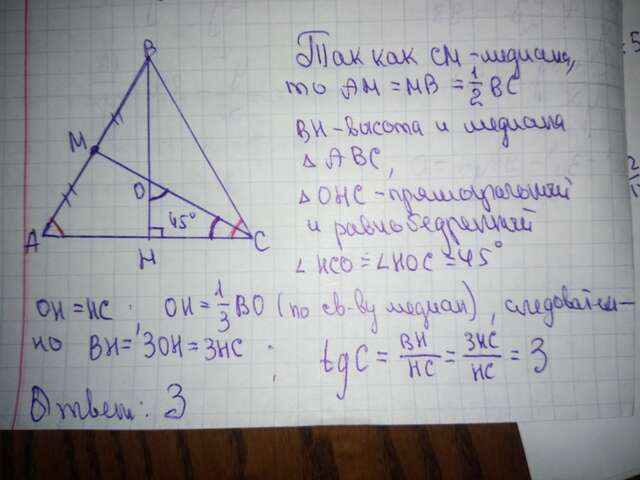 B
M
O
45°
A
H
C
Так как CM - медиана,
то AM = MB = 1/2 BC
BH - высота и медиана
△ ABC,
△ OHC - прямоугольный
и равнобедренный
∠ HCO = ∠ HOC = 45°
OH = HC . OH = 1/3 BO (по св-ву медиан), следователь-
но BH = 3OH = 3HC ; tg C = BH/HC = 3HC/HC = 3
Ответ: 3
5